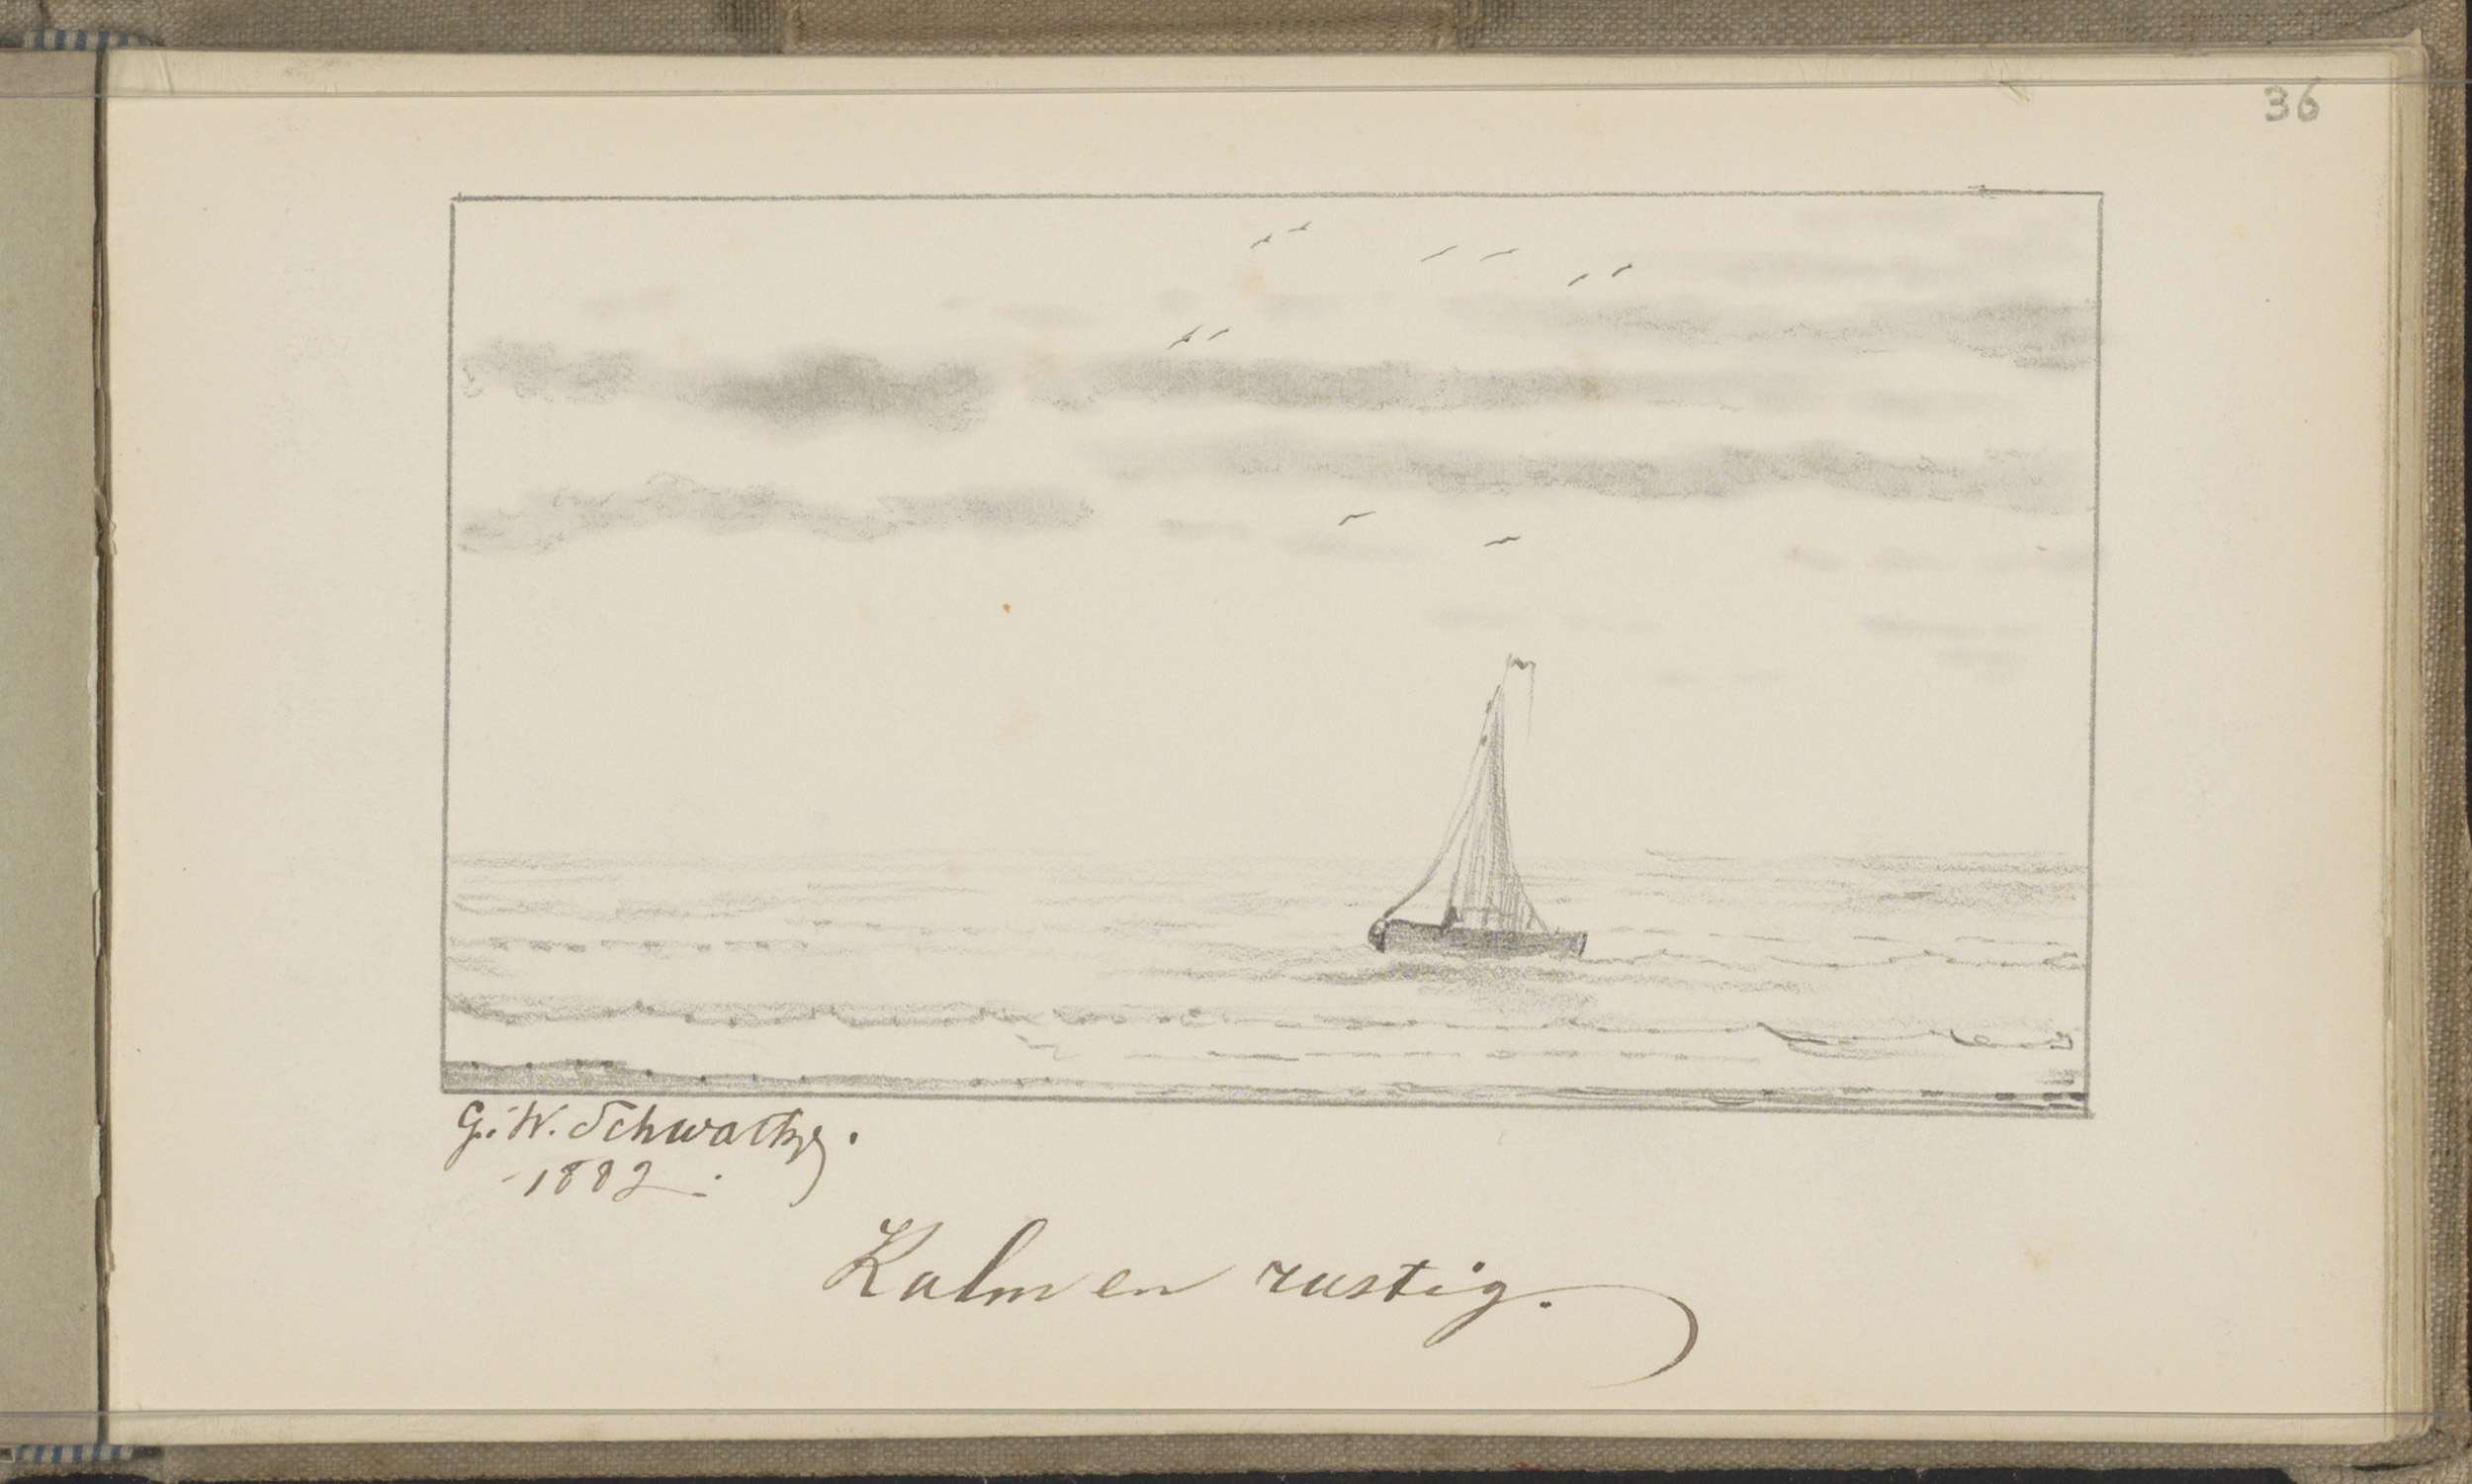 36
G. W. Schwartze.
-1882-.
Kalm en rustig.